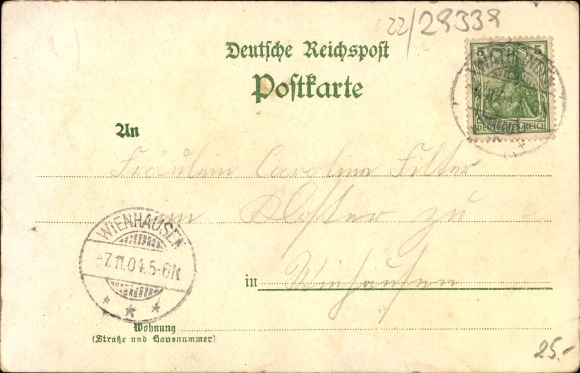 22/28338
Deutsche Reichspost
Postkarte
5 5
DEUTSCHES REICH
An
Fräulein Caroline Filter
im Kloster zu
in Wienhausen
WIENHAUSEN
-7.11.04.5-6N
* * *
Wohnung
(Straße und Hausnummer)
25.-